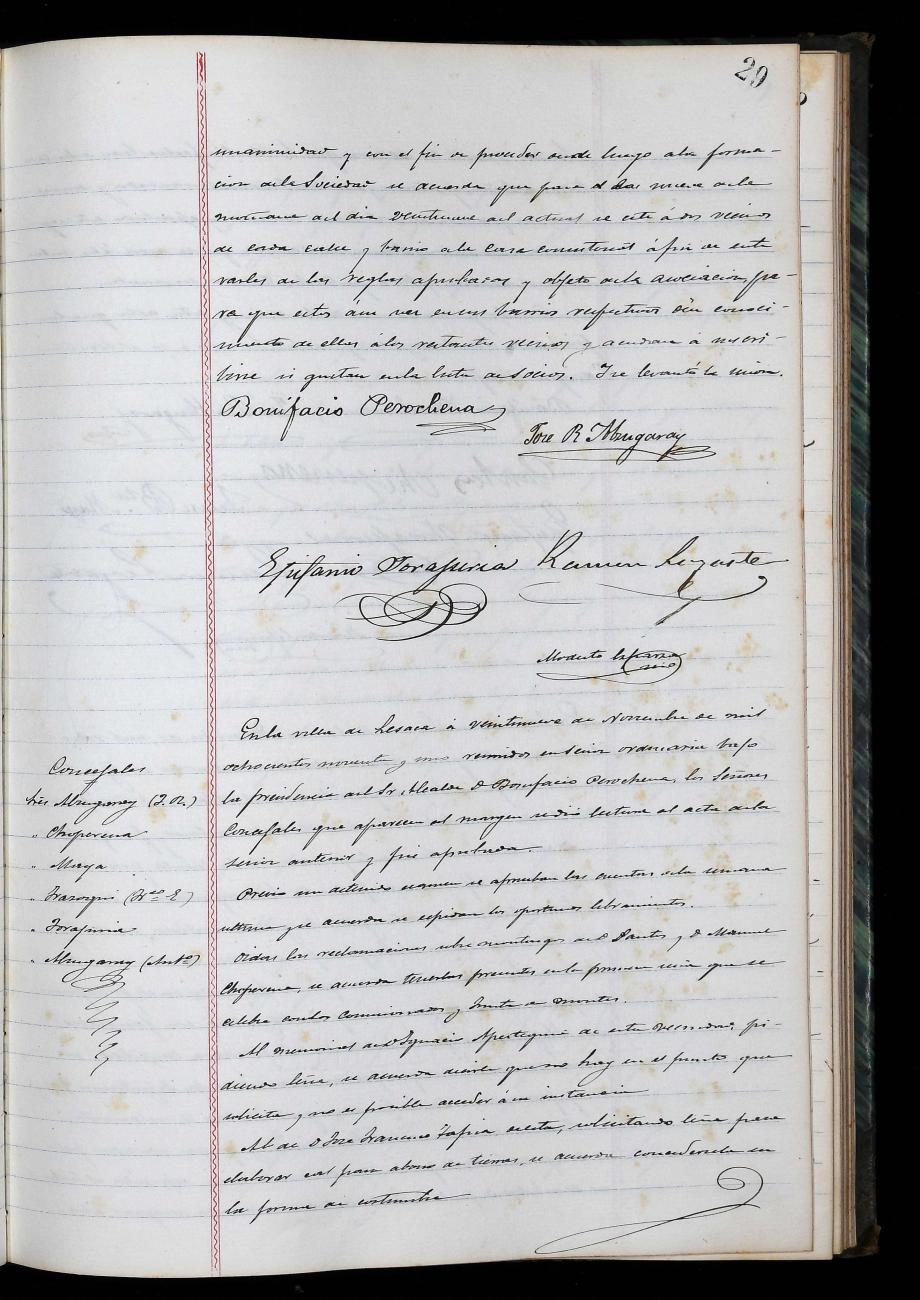 29
unanimidad y con el fin de proceder desde luego a la forma-
cion de la Sociedad se acuerda que para el las nueve de la
mañana del dia veintinueve del actual se cite á dos vecinos
de cada calle y barrio a la Casa consistorial á fin de ente
rarles de las reglas aprobadas y objeto de la asociacion, pa-
ra que estos á su vez en sus barrios respectivos den conoci-
miento de ellas á los restantes vecinos y acudan á inscri-
birse si gustan en la lista de Socios. Y se levantó la sesion.
Bonifacio Perochena
Jose R. Mugaray
Epifanio Ramon
Modesto
En la villa de Lesaca á veintinueve de Noviembre de mil
ochocientos noventa y uno reunidos en sesion ordinaria bajo
la presidencia del Sr. Alcalde D Bonifacio Perochena, los Señores
Concejales que aparecen al margen se dió lectura al acta de la
sesion anterior y fué aprobada.
Concejales
Mugaray (J. R.)
" Choperena
" Maya
"
"
" Mugaray (Ant.º)
Previo un detenido examen se aprueban las cuentas de la semana
ultima y se acuerda se expidan los oportunos libramientos.
Oidas las reclamaciones sobre de D Santos y D Manuel
Choperena, se acuerda tenerlas presentes en la proxima sesion que se
celebre con los Comisionados y Junta de Montes.
Al memorial de D Ignacio Apesteguia de esta vecindad pi-
diendo leña, se acuerda decirle que no hay en el punto que
solicita y no es posible acceder á su instancia
Al de D Jose Francisco Tapia solicitando leña para
elaborar cal para abono de tierras, se acuerda concedersela en
la forma de costumbre